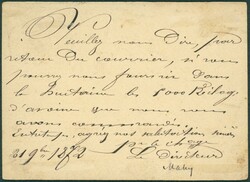 Veuillez nous Dire, pour
retour Du courrier, si vous
pourrez nous fournir dans
la huitaine les 5000 Kilog
d'avoine que nous vous
avons commandés.
agréez nos salutations
31 9bre 1872
Le Directeur